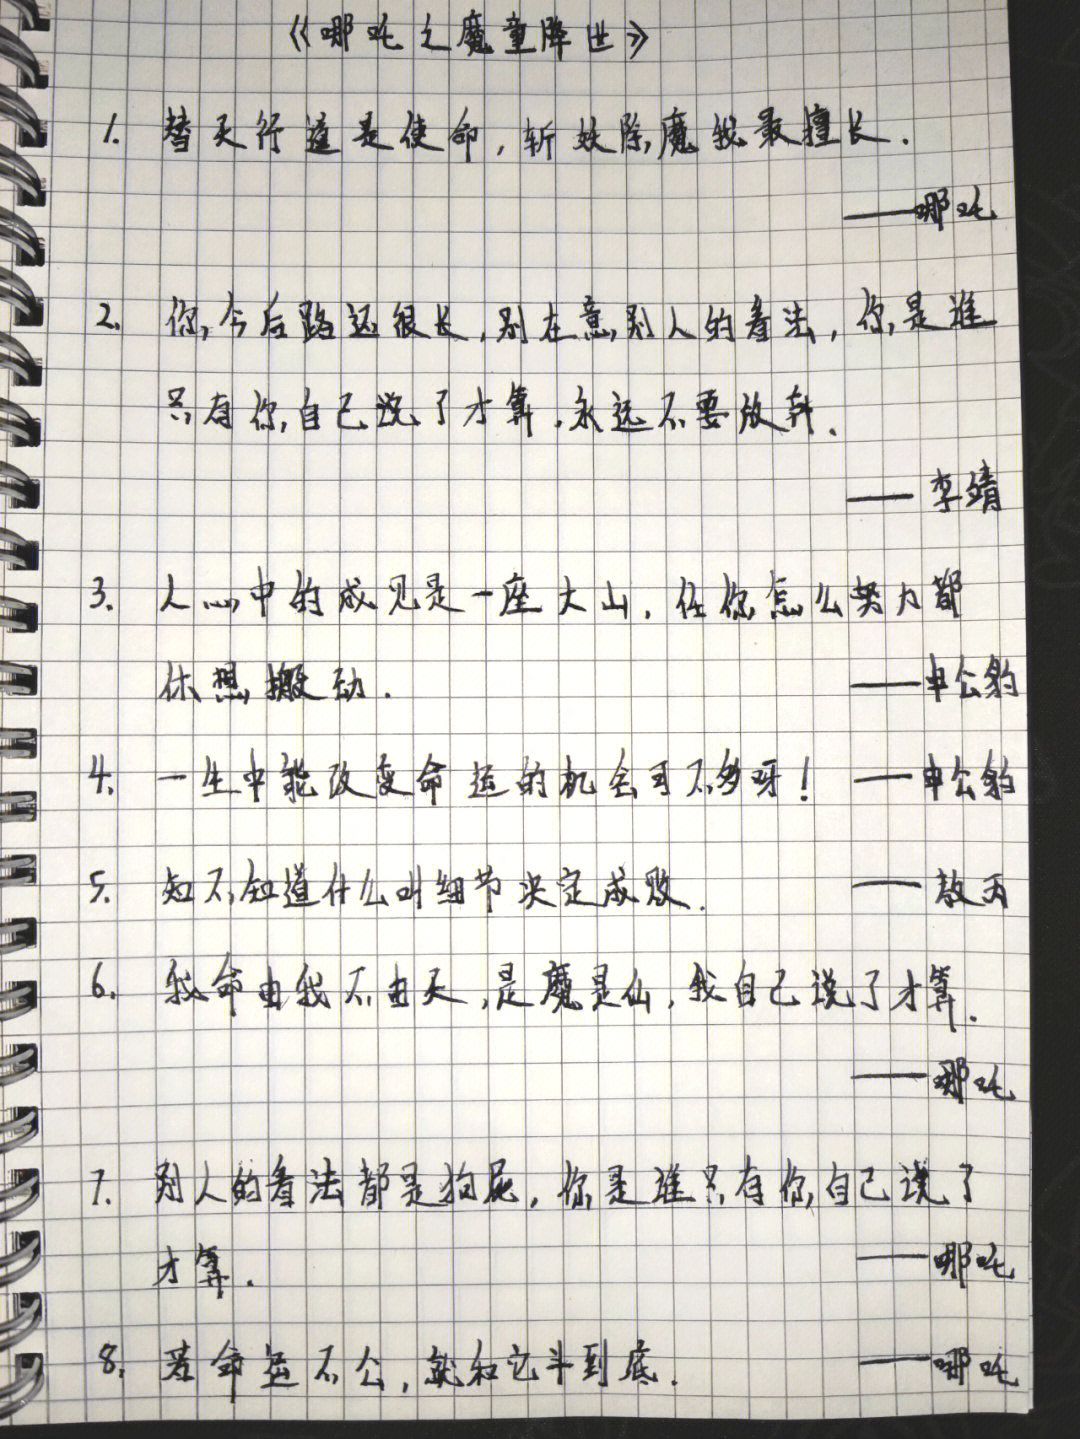 《哪吒之魔童降世》
1. 替天行道是使命，斩妖除魔我最擅长.
——哪吒
2. 你今后路还很长，别在意别人的看法，你是谁
只有你自己说了才算.永远不要放弃.
——李靖
3. 人心中的成见是一座大山，任你怎么努力都
休想搬动.
——申公豹
4. 一生中能改变命运的机会可不多呀！ ——申公豹
5. 知不知道什么叫细节决定成败. ——敖丙
6. 我命由我不由天，是魔是仙，我自己说了才算.
——哪吒
7. 别人的看法都是狗屁，你是谁只有你自己说了
才算. ——哪吒
8. 若命运不公，就和它斗到底. ——哪吒